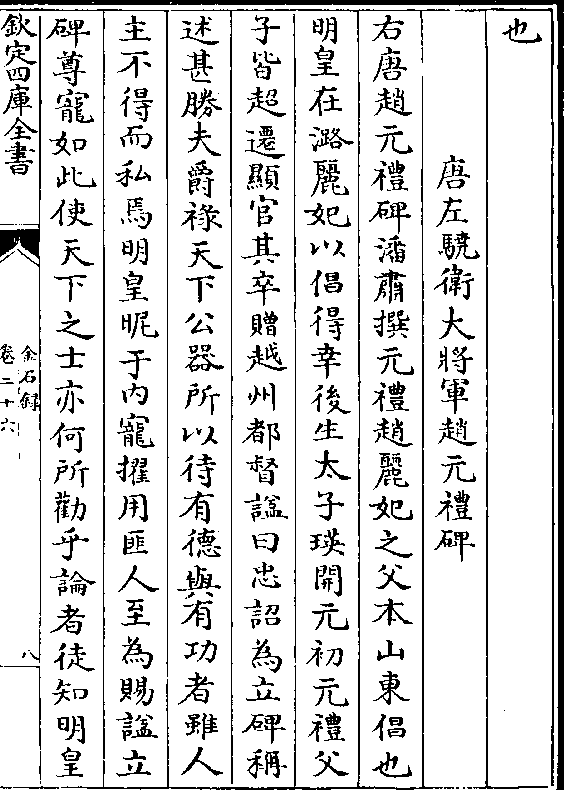 也
唐左驍衛大將軍趙元禮碑
右唐趙元禮碑潘肅撰元禮趙麗妃之父本山東倡也
明皇在潞麗妃以倡得幸後生太子瑛開元初元禮父
子皆超遷顯官其卒贈越州都督諡曰忠詔為立碑稱
述甚勝夫爵祿天下公器所以待有德與有功者雖人
主不得而私焉明皇昵于内寵擢用匪人至為賜諡立
碑尊寵如此使天下之士亦何所勸乎論者徒知明皇
欽定四庫全書
金石録
卷二十六
八